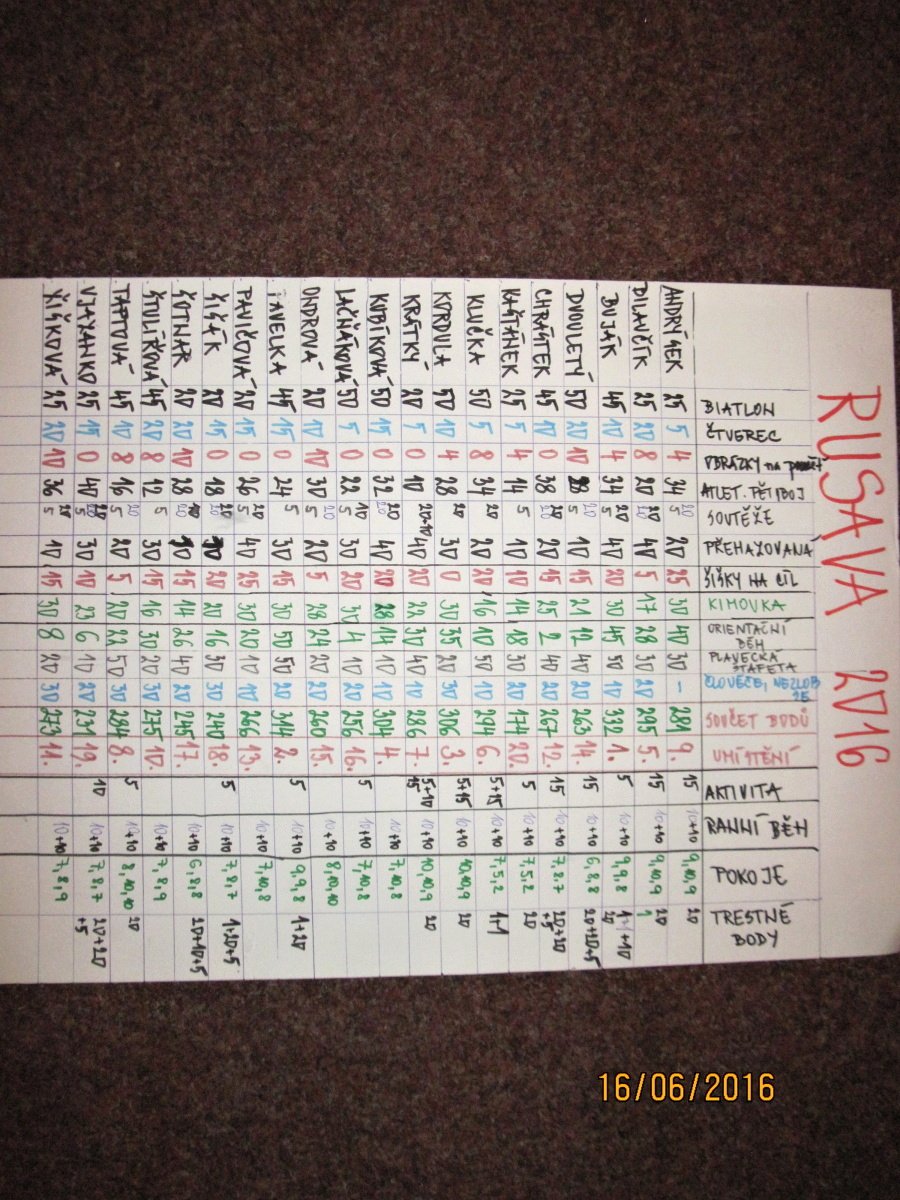 RUSAVA 2016
BIATLON
ČTVEREC
OBRÁZKY na paměť
ATLET. PĚTIBOJ
SOUTĚŽE
PŘEHAZOVANÁ
ŠIŠKY NA CÍL
KIMOVKA
ORIENTAČNÍ
BĚH
PLAVECKÁ
ŠTAFETA
ČLOVĚČE, NEZLOB
SE
SOUČET BODŮ
UMÍSTĚNÍ
AKTIVITA
RANNÍ BĚH
POKOJE
TRESTNÉ
BODY
ANDRÝSEK 25 5 4 34 20 5 20 25 30 40 30 - 281 9. 15 10+10 9,10,9 20
BILAVČÍK 25 20 8 20 20 5 40 5 17 28 30 20 295 5. 15 10+10 9,10,9 20 1
BUJÁK 45 10 4 34 5 40 20 30 45 50 10 332 1. 5 10+10 9,9,8 1+1+10 20
DVOULETÝ 50 20 10 20 5 10 15 21 12 40 20 263 14. 15 10+10 6,8,8 20+20+5
CHRÁSTEK 45 10 0 38 20 5 20 15 25 2 40 20 267 12. 15 10+10 7,8,7 20+20 +5
KAŠTÁNEK 25 5 4 14 5 10 10 14 18 30 10 174 20. 5 10+10 7,5,2 20
KLUČKA 50 5 8 34 20 5 20 20 16 10 50 10 294 6. 5+15 10+10 7,5,2 1+1
KORDULA 50 10 4 28 20 30 0 30 35 20 10 306 3. 5+15 10+10 10,10,9 20
KRÁTKÝ 20 5 0 10 20+10 40 20 22 30 40 10 286 7. 5+10 15 10+10 10,10,9 20
KUBÍKOVÁ 50 15 0 32 20 40 20 28 14 10 10 304 4. 10+10 7,10,8
LAČŇÁKOVÁ 50 5 0 22 10 5 30 20 30 4 10 20 256 16. 5 10+10 7,10,8
ONDROVÁ 20 10 10 30 5 20 5 28 24 20 20 260 15. 10+10 8,10,10
PAVELKA 45 15 0 24 5 30 15 30 50 50 20 314 2. 5 10+10 9,9,8 1+20
PAVIČOVÁ 20 15 0 26 20 5 40 25 30 20 10 10 266 13. 10+10 7,10,8
ŠIŠÁK 20 15 0 18 20 5 10 20 20 16 30 30 240 18. 5 10+10 7,8,7 1+20+5
ŠOTNAR 20 20 10 28 10 20 10 15 14 26 40 20 245 17. 10+10 6,8,8 20+10+5
ŠTULÍŘOVÁ 45 20 8 12 5 30 15 16 30 20 10 275 10. 10+10 7,8,9
TARTOVÁ 45 10 8 16 5 20 5 20 22 50 30 284 8. 5 10+10 8,10,10 20
25 15 0 40 20 20 30 10 23 6 10 20 231 19. 10 10+10 7,8,7 20+20 +5
ŽIŠKOVÁ 25 20 10 36 20 5 10 15 30 8 20 30 273 11. 10+10 7,8,9
16/06/2016